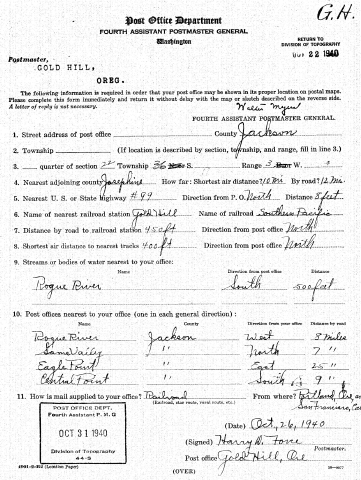 G.H.
Post Office Department
FOURTH ASSISTANT POSTMASTER GENERAL
Washington
RETURN TO
DIVISION OF TOPOGRAPHY
22 1940
Postmaster,
GOLD HILL,
OREG.
The following information is required in order that your post office may be shown in its proper location on postal maps.
Please complete this form immediately and return it without delay with the map or sketch described on the reverse side.
A letter of reply is not necessary.
FOURTH ASSISTANT POSTMASTER GENERAL.
1. Street address of post office County Jackson
2. Township (If location is described by section, township, and range, fill in line 3.)
3. quarter of section 22 Township 36 S. Range 3 W.
4. Nearest adjoining county Josephine How far: Shortest air distance? 10 Mi By road? 12 Mi.
5. Nearest U.S. or State highway #99 Direction from P.O. North Distance 8 feet
6. Name of nearest railroad station Gold Hill Name of railroad Southern Pacific
7. Distance by road to railroad station 450 ft Direction from post office North
8. Shortest air distance to nearest tracks 400 ft Direction from post office North
9. Streams or bodies of water nearest to your office:
Name Direction from post office Distance
Rogue River South 500 feet
10. Post offices nearest to your office (one in each general direction):
Name County Direction from your office Distance by road
Rogue River Jackson West 8 Miles
Sams Valley " North 7 "
Eagle Point " East 25 "
Central Point " South 9 "
11. How is mail supplied to your office? Railroad From where? Portland, Ore and
(Railroad, star route, rural route, etc.) San Francisco, Cal
POST OFFICE DEPT.
Fourth Assistant P. M. G
OCT 31 1940
Division of Topography
44-3
(Date) Oct, 26, 1940
(Signed) Harry D. Force
Postmaster.
Post office Gold Hill, Ore
(OVER)